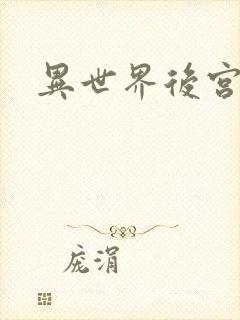 異世界後宮
庞涓